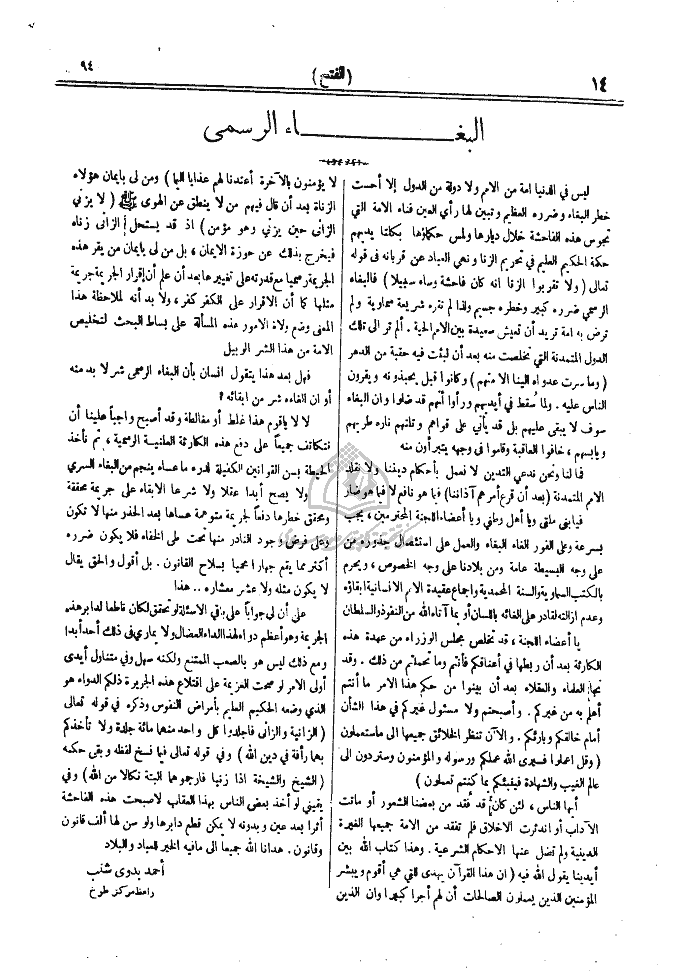 ٩٤
(الفتح)
١٤
البغاء الرسمى
ليس في الدنيا امة من الامم ولا دولة من الدول إلا أحست
خطر البغاء وضرره العظيم وتبين لها رأي العين فناء الامة التي
تجوس هذه الفاحشة خلال ديارها ولمس حكماؤها بكلتا يديهم
حكمة الحكيم العليم في تحريم الزنا ونهي العباد عن قربانه في قوله
تعالى (ولا تقربوا الزنا انه كان فاحشة وساء سبيلا) فالبغاء
الرسمي ضرره كبير وخطره جسيم ولذا لم تقره شريعة سماوية ولم
ترض به امة تريد أن تعيش سعيدة بين الامم الحية. ألم تر الى تلك
الدول المتمدنة التي تخلصت منه بعد أن لبثت فيه حقبة من الدهر
(وما سرت عدواه الينا الا منهم) وكانوا قبل يحبذونه ويقرون
الناس عليه. ولما سُقط في أيديهم ورأوا أنهم قد ضلوا وان البغاء
سوف لا يبقى عليهم بل قد يأتي على قواهم وتلتهم ناره طريهم
ويابسهم، خافوا العاقبة وقاموا في وجهه يتبرأون منه
فما لنا ونحن ندعي التدين لا نعمل بأحكام ديننا ولا نقلد
الامم المتمدنة (بعد أن قرع أمرهم آذاننا) فيما هو نافع لا فيما هو ضار
فيابني ملتي ويا أهل وطني ويا أعضاء اللجنة المحترمين، يجب
بسرعة وعلى الفور الغاء البغاء والعمل على استئصال جذوره من
على وجه البسيطة عامة ومن بلادنا على وجه الخصوص، ويحرم
بالكتب السماوية والسنة المحمدية واجماع عقيدة الامم الانسانية إبقاؤه
وعدم ازالته لقادر على الغائه باللسان أو بما آتاه الله من النفوذ والسلطان
يا أعضاء اللجنة، قد تخلص مجلس الوزراء من عهدة هذه
الكارثة بعد أن ربطها في أعناقكم فأنتم وما تحملتم من ذلك. وقد
نجا العلماء والعقلاء بعد أن بينوا من حكم هذا الامر ما أنتم
أهلم به من غيركم. وأصبحتم ولا مسئول غيركم في هذا الشأن
أمام خالقكم وبارئكم. والآن تنظر الخلائق جميعها الى ماستعملون
(وقل اعملوا فسيرى الله عملكم ورسوله والمؤمنون وستردون الى
عالم الغيب والشهادة فينبئكم بما كنتم تعملون)
أيها الناس، لئن كان قد فقد من بعضنا الشعور أو ماتت
الآداب أو اندثرت الاخلاق فلم تفقد من الامة جميعها الغيرة
الدينية ولم تضل عنها الاحكام الشرعية. وهذا كتاب الله بين
أيدينا يقول الله فيه (ان هذا القرآن يهدى للتي هي أقوم ويبشر
المؤمنين الذين يعملون الصالحات أن لهم أجرا كبيرا وان الذين
لا يؤمنون بالآخرة أعتدنا لهم عذابا اليما) ومن لى بايمان هؤلاء
الزناة بعد أن قال فيهم من لا ينطق عن الهوى ﷺ (لا يزني
الزاني حين يزني وهو مؤمن) اذ قد يستحل الزانى زناه
فيخرج بذلك عن حوزة الايمان، بل من لى بايمان من يقر هذه
الجريمة رسميا مع قدرته على تغييرها بعد أن علم أن إقرار الجريمة جريمة
مثلها كما أن الاقرار على الكفر كفر، ولا بد أنه لملاحظة هذا
المعنى وضع ولاة الامور هذه المسألة على بساط البحث لتخليص
الامة من هذا الشر الوبيل
فهل بعد هذا يتقول انسان بأن البغاء الرسمى شر لا بد منه
أو ان الغاءه شر من ابقائه؟
لا لا ياقوم هذا غلط أو مغالطة وقد أصبح واجباً علينا أن
نتكاتف جميعاً على دفع هذه الكارثة العلنية الرسمية، ثم نأخذ
الحيطة بسن القوانين الكفيلة لدرء ما عساه ينجم من البغاء السري
ولا يصح أبدا عقلا ولا شرعا الابقاء على جريمة محققة
ومحقق خطرها دفعاً لجريمة متوهمة عساها بعد الحذر منها لا تكون
وعلى فرض وجود النادر منها تحت طي الخفاء فلا يكون ضرره
أكثر مما يقع جهارا محميا بسلاح القانون. بل أقول والحق يقال
لا يكون مثله ولا عشر معشاره .. هذا
على أن لى جواباً على باقي الاسئلة لو تحقق لكان قاطعا لدابر هذه
الجريمة وهو أعظم دواء لهذا الداء العضال ولا يمارى في ذلك أحد أبدا
ومع ذلك ليس هو بالصعب الممتنع ولكنه سهل وفي متناول أيدى
أولى الامر لو صحت العزيمة على اقتلاع هذه الجريرة ذلكم الدواء هو
الذي وضعه الحكيم العليم بأمراض النفوس وذكره في قوله تعالى
(الزانية والزانى فاجلدوا كل واحد منهما مائة جلدة ولا تأخذكم
بهما رأفة في دين الله) وفي قوله تعالى فيما نسخ لفظه وبقى حكمه
(الشيخ والشيخة اذا زنيا فارجموهما البتة نكالا من الله) وفي
يقيني لو أخذ بعض الناس بهذا العقاب لاصبحت هذه الفاحشة
أثرا بعد عين وبدونه لا يمكن قطع دابرها ولو سن لها ألف قانون
وقانون. هدانا الله جميعا الى مافيه الخير للعباد والبلاد
أحمد بدوى شنب
واعظ مركز طوخ